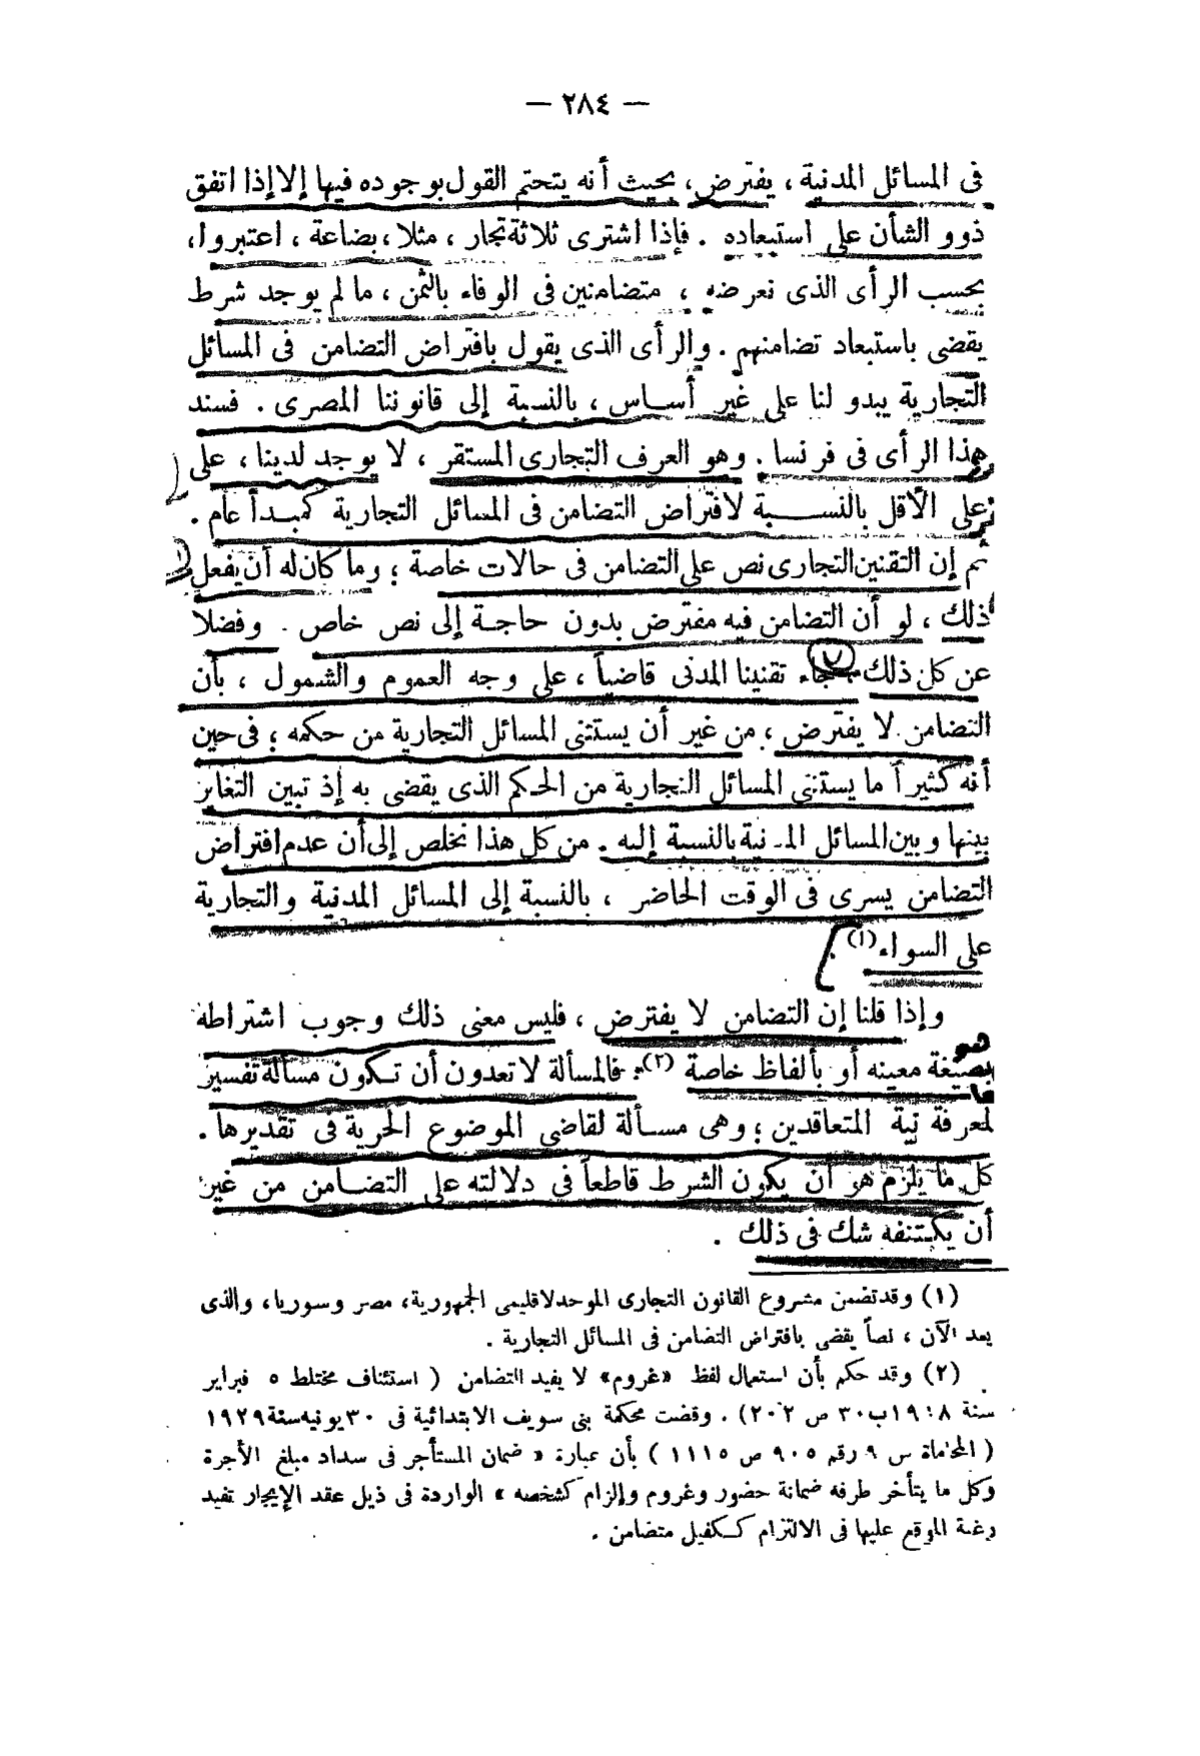 — ٢٨٤ —
فى المسائل المدنية ، يفترض ، بحيث أنه يتحتم القول بوجوده فيها إلا إذا اتفق
ذوو الشأن على استبعاده . فإذا اشترى ثلاثة تجار ، مثلا ، بضاعة ، اعتبروا ،
بحسب الرأى الذى نعرضه ، متضامنين فى الوفاء بالثمن ، ما لم يوجد شرط
يقضى باستبعاد تضامنهم . والرأى الذى يقول بافتراض التضامن فى المسائل
التجارية يبدو لنا على غير أساس ، بالنسبة إلى قانوننا المصرى . فسند
هذا الرأى فى فرنسا . وهو العرف التجارى المستقر ، لا يوجد لدينا ، على
على الأقل بالنسبة لافتراض التضامن فى المسائل التجارية كمبدأ عام .
ثم إن التقنين التجارى نص على التضامن فى حالات خاصة ؛ وما كان له أن يفعل
ذلك ، لو أن التضامن فيه مفترض بدون حاجة إلى نص خاص . وفضلا
عن كل ذلك جاء تقنينا المدنى قاضياً ، على وجه العموم والشمول ، بأن
التضامن لا يفترض ، من غير أن يستثنى المسائل التجارية من حكمه ؛ فى حين
أنه كثيراً ما يستثنى المسائل التجارية من الحكم الذى يقضى به إذ تبين التغاير
بينها وبين المسائل المدنية بالنسبة إليه . من كل هذا نخلص إلى أن عدم افتراض
التضامن يسرى فى الوقت الحاضر ، بالنسبة إلى المسائل المدنية والتجارية
على السواء (١) .
وإذا قلنا إن التضامن لا يفترض ، فليس معنى ذلك وجوب اشتراطه
بصيغة معينه أو بألفاظ خاصة (٢) . فالمسألة لا تعدون أن تكون مسألة تفسير
لمعرفة نية المتعاقدين ؛ وهى مسألة لقاضى الموضوع الحرية فى تقديرها .
كل ما يلزم هو أن يكون الشرط قاطعاً فى دلالته على التضامن من غير
أن يكتنفه شك فى ذلك .
(١) وقد تضمن مشروع القانون التجارى الموحد لاقليمى الجمهورية ، مصر وسوريا ، والذى
يعد الآن ، نصاً يقضى بافتراض التضامن فى المسائل التجارية .
(٢) وقد حكم بأن استعمال لفظ «غروم» لا يفيد التضامن ( استئناف مختلط ٥ فبراير
سنة ب ٣٠ ص ٢٠٢) . وقضت محكمة بنى سويف الابتدائية فى ٣٠ يونيه سنة ١٩٢٩
( المحاماة س ٩ رقم ٩٠٥ ص ١١١٥ ) بأن عبارة « ضمان المستأجر فى سداد مبلغ الأجرة
وكل ما يتأخر طرفه ضمانة حضور وغروم وإلزام كشخصه » الواردة فى ذيل عقد الإيجار تفيد
رغبة الموقع عليها فى الالتزام ككفيل متضامن .